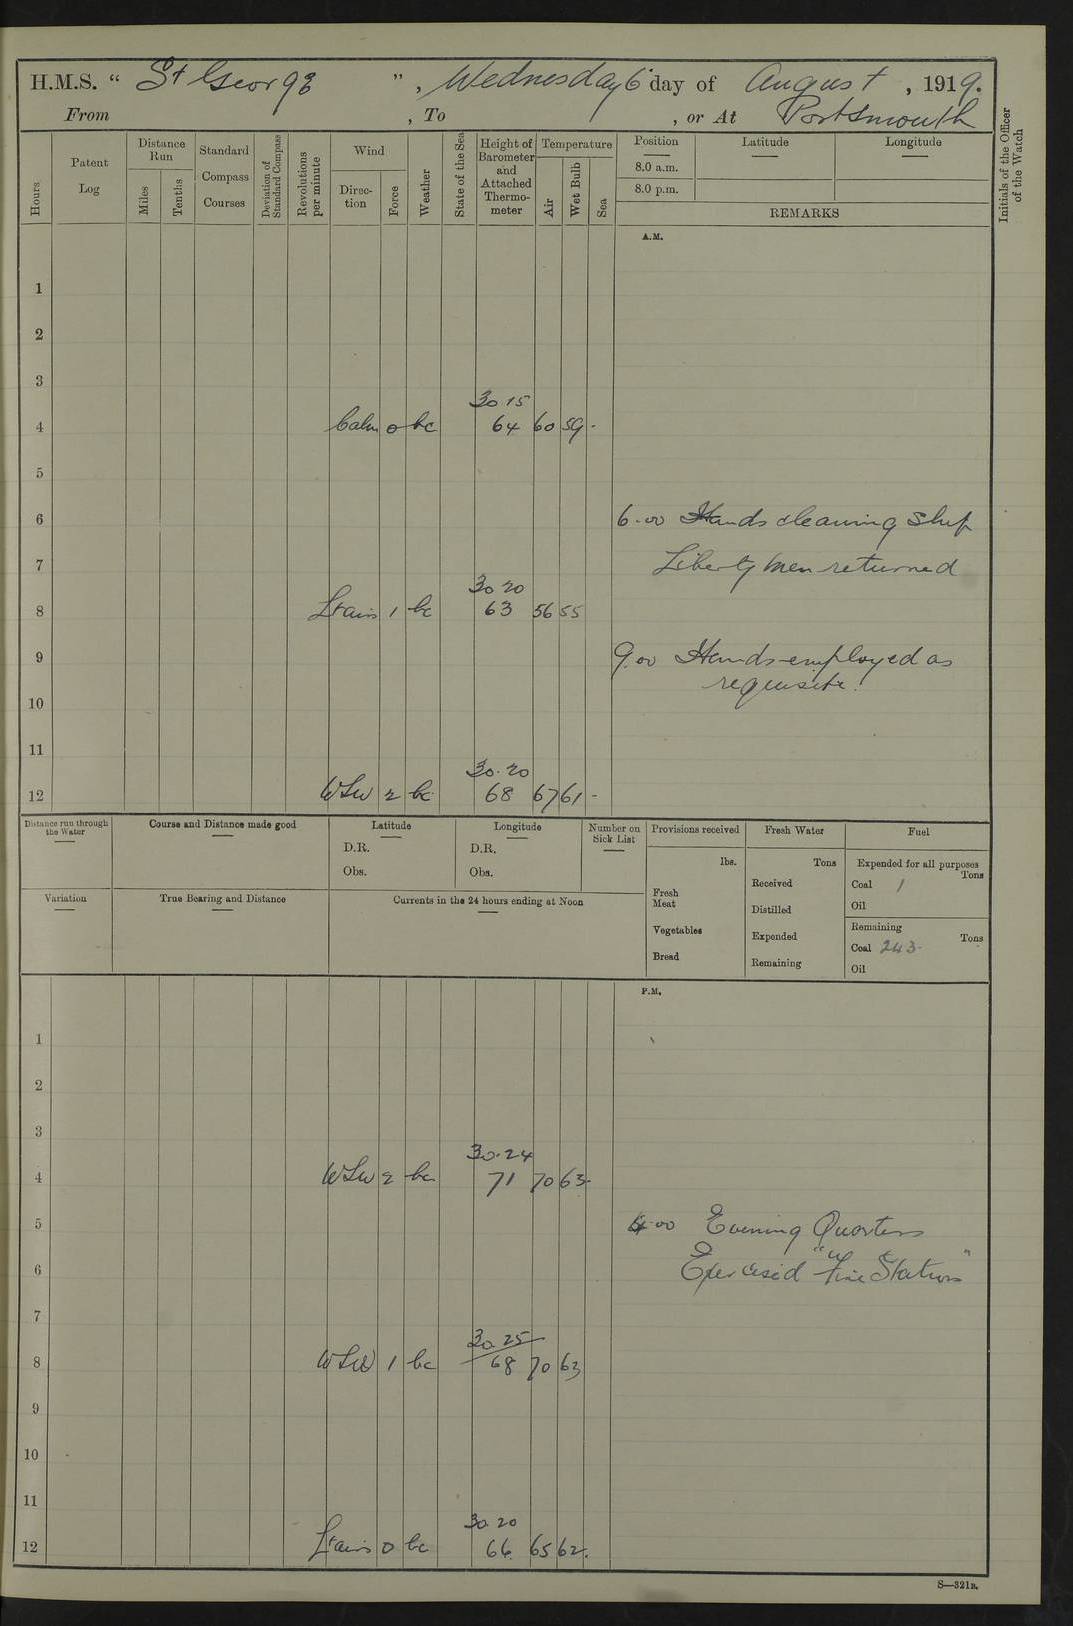 H.M.S. “ St George ”, Wednesday 6 day of August, 1919.
From , To , or At Portsmouth
Hours
Patent Log
Distance Run
Miles
Tenths
Standard Compass Courses
Deviation of Standard Compass
Revolutions per minute
Wind
Direction
Force
Weather
State of the Sea
Height of Barometer and Attached Thermometer
Temperature
Air
Wet Bulb
Sea
Position
8.0 a.m.
8.0 p.m.
Latitude
Longitude
REMARKS
Initials of the Officer of the Watch
A.M.
1
2
3
30 15
4 Calm 0 bc 64 60 59 -
5
6 6.00 Hands cleaning Ship
7 Liberty men returned
30 20
8 Lt airs 1 bc 63 56 55
9 9.00 Hands employed as
requisite.
10
11
30.20
12 WSW 2 bc 68 67 61 -
Distance run through the Water
Course and Distance made good
Latitude
D.R.
Obs.
Longitude
D.R.
Obs.
Number on Sick List
Provisions received
lbs.
Fresh Meat
Vegetables
Bread
Fresh Water
Tons
Received
Distilled
Expended
Remaining
Fuel
Expended for all purposes
Tons
Coal 1
Oil
Remaining
Coal 243. Tons
Oil
Variation
True Bearing and Distance
Currents in the 24 hours ending at Noon
P.M.
1
2
3
30.24
4 WSW 2 bc 71 70 63
5 4.00 Evening Quarters
6 Exercised "Fire Stations"
7
30.25
8 WSW 1 bc 68 70 63
9
10
11
30.20
12 Lt airs 0 bc 66 65 62.
S—321B.